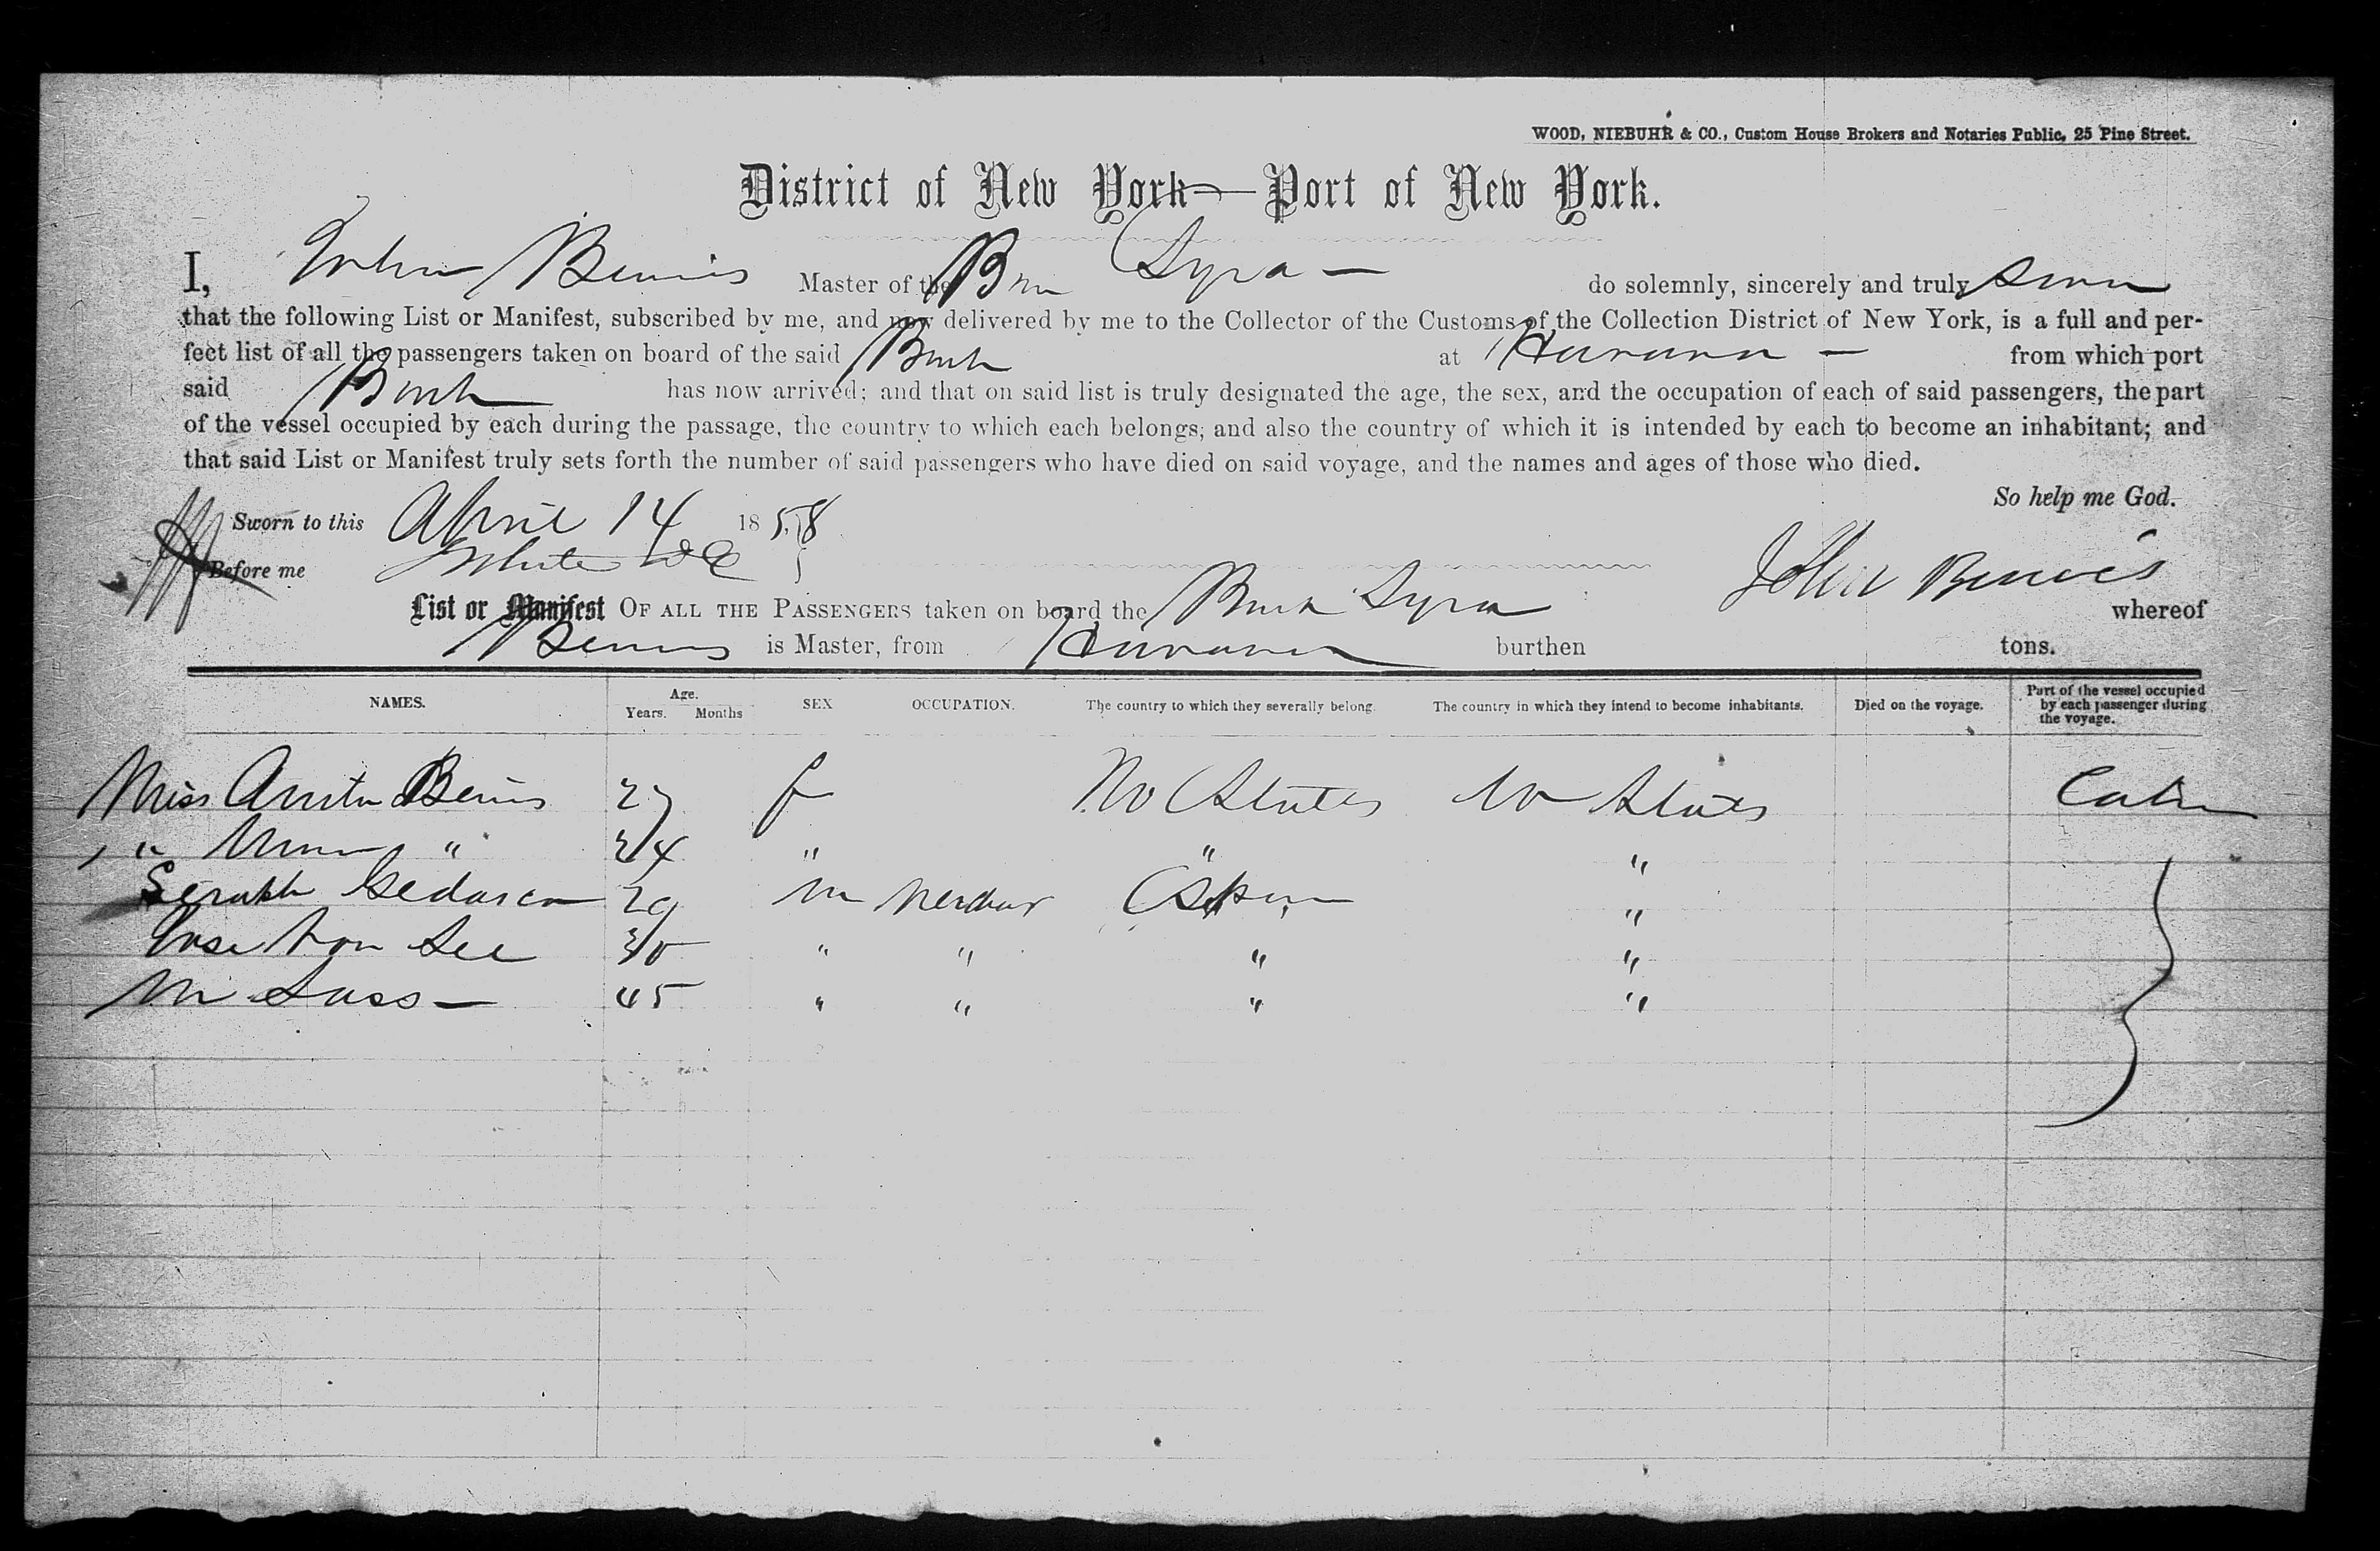 WOOD, NIEBUHR & CO., Custom House Brokers and Notaries Public, 25 Pine Street.
District of New York—Port of New York.
I, John Bemis Master of the Bark Lyra — do solemnly, sincerely and truly swear
that the following List or Manifest, subscribed by me, and now delivered by me to the Collector of the Customs of the Collection District of New York, is a full and per-
fect list of all the passengers taken on board of the said Bark at Havana — from which port
said Bark has now arrived; and that on said list is truly designated the age, the sex, and the occupation of each of said passengers, the part
of the vessel occupied by each during the passage, the country to which each belongs; and also the country of which it is intended by each to become an inhabitant; and
that said List or Manifest truly sets forth the number of said passengers who have died on said voyage, and the names and ages of those who died.
So help me God.
Sworn to this April 14 1858
Before me John Bemis
List or Manifest OF ALL THE PASSENGERS taken on board the Bark Lyra whereof
Bemis is Master, from Havana burthen tons.
NAMES. Age. Years. Months SEX OCCUPATION. The country to which they severally belong. The country in which they intend to become inhabitants. Died on the voyage. Part of the vessel occupied by each passenger during the voyage.
Miss Bemis 27 f U States U States Cabin
" " " 24 " " "
29 m "
Jose Von 30 " " " "
M 45 " " " "